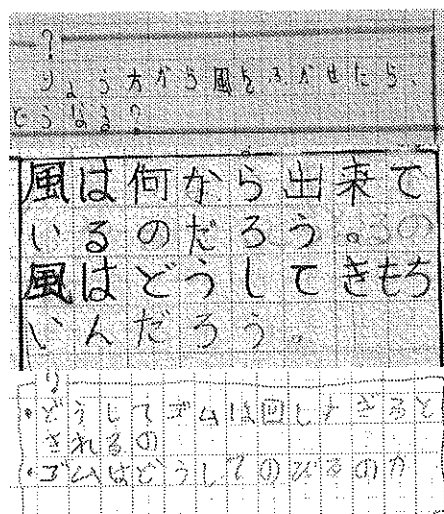 ?
りょう方から風をふかせたら、
どうなる?
風は何から出来て
いるのだろう。
風はどうしてきもち
いんだろう。
・どうしてゴムは回しすぎると
されるの
・ゴムはどうしてのびるの?